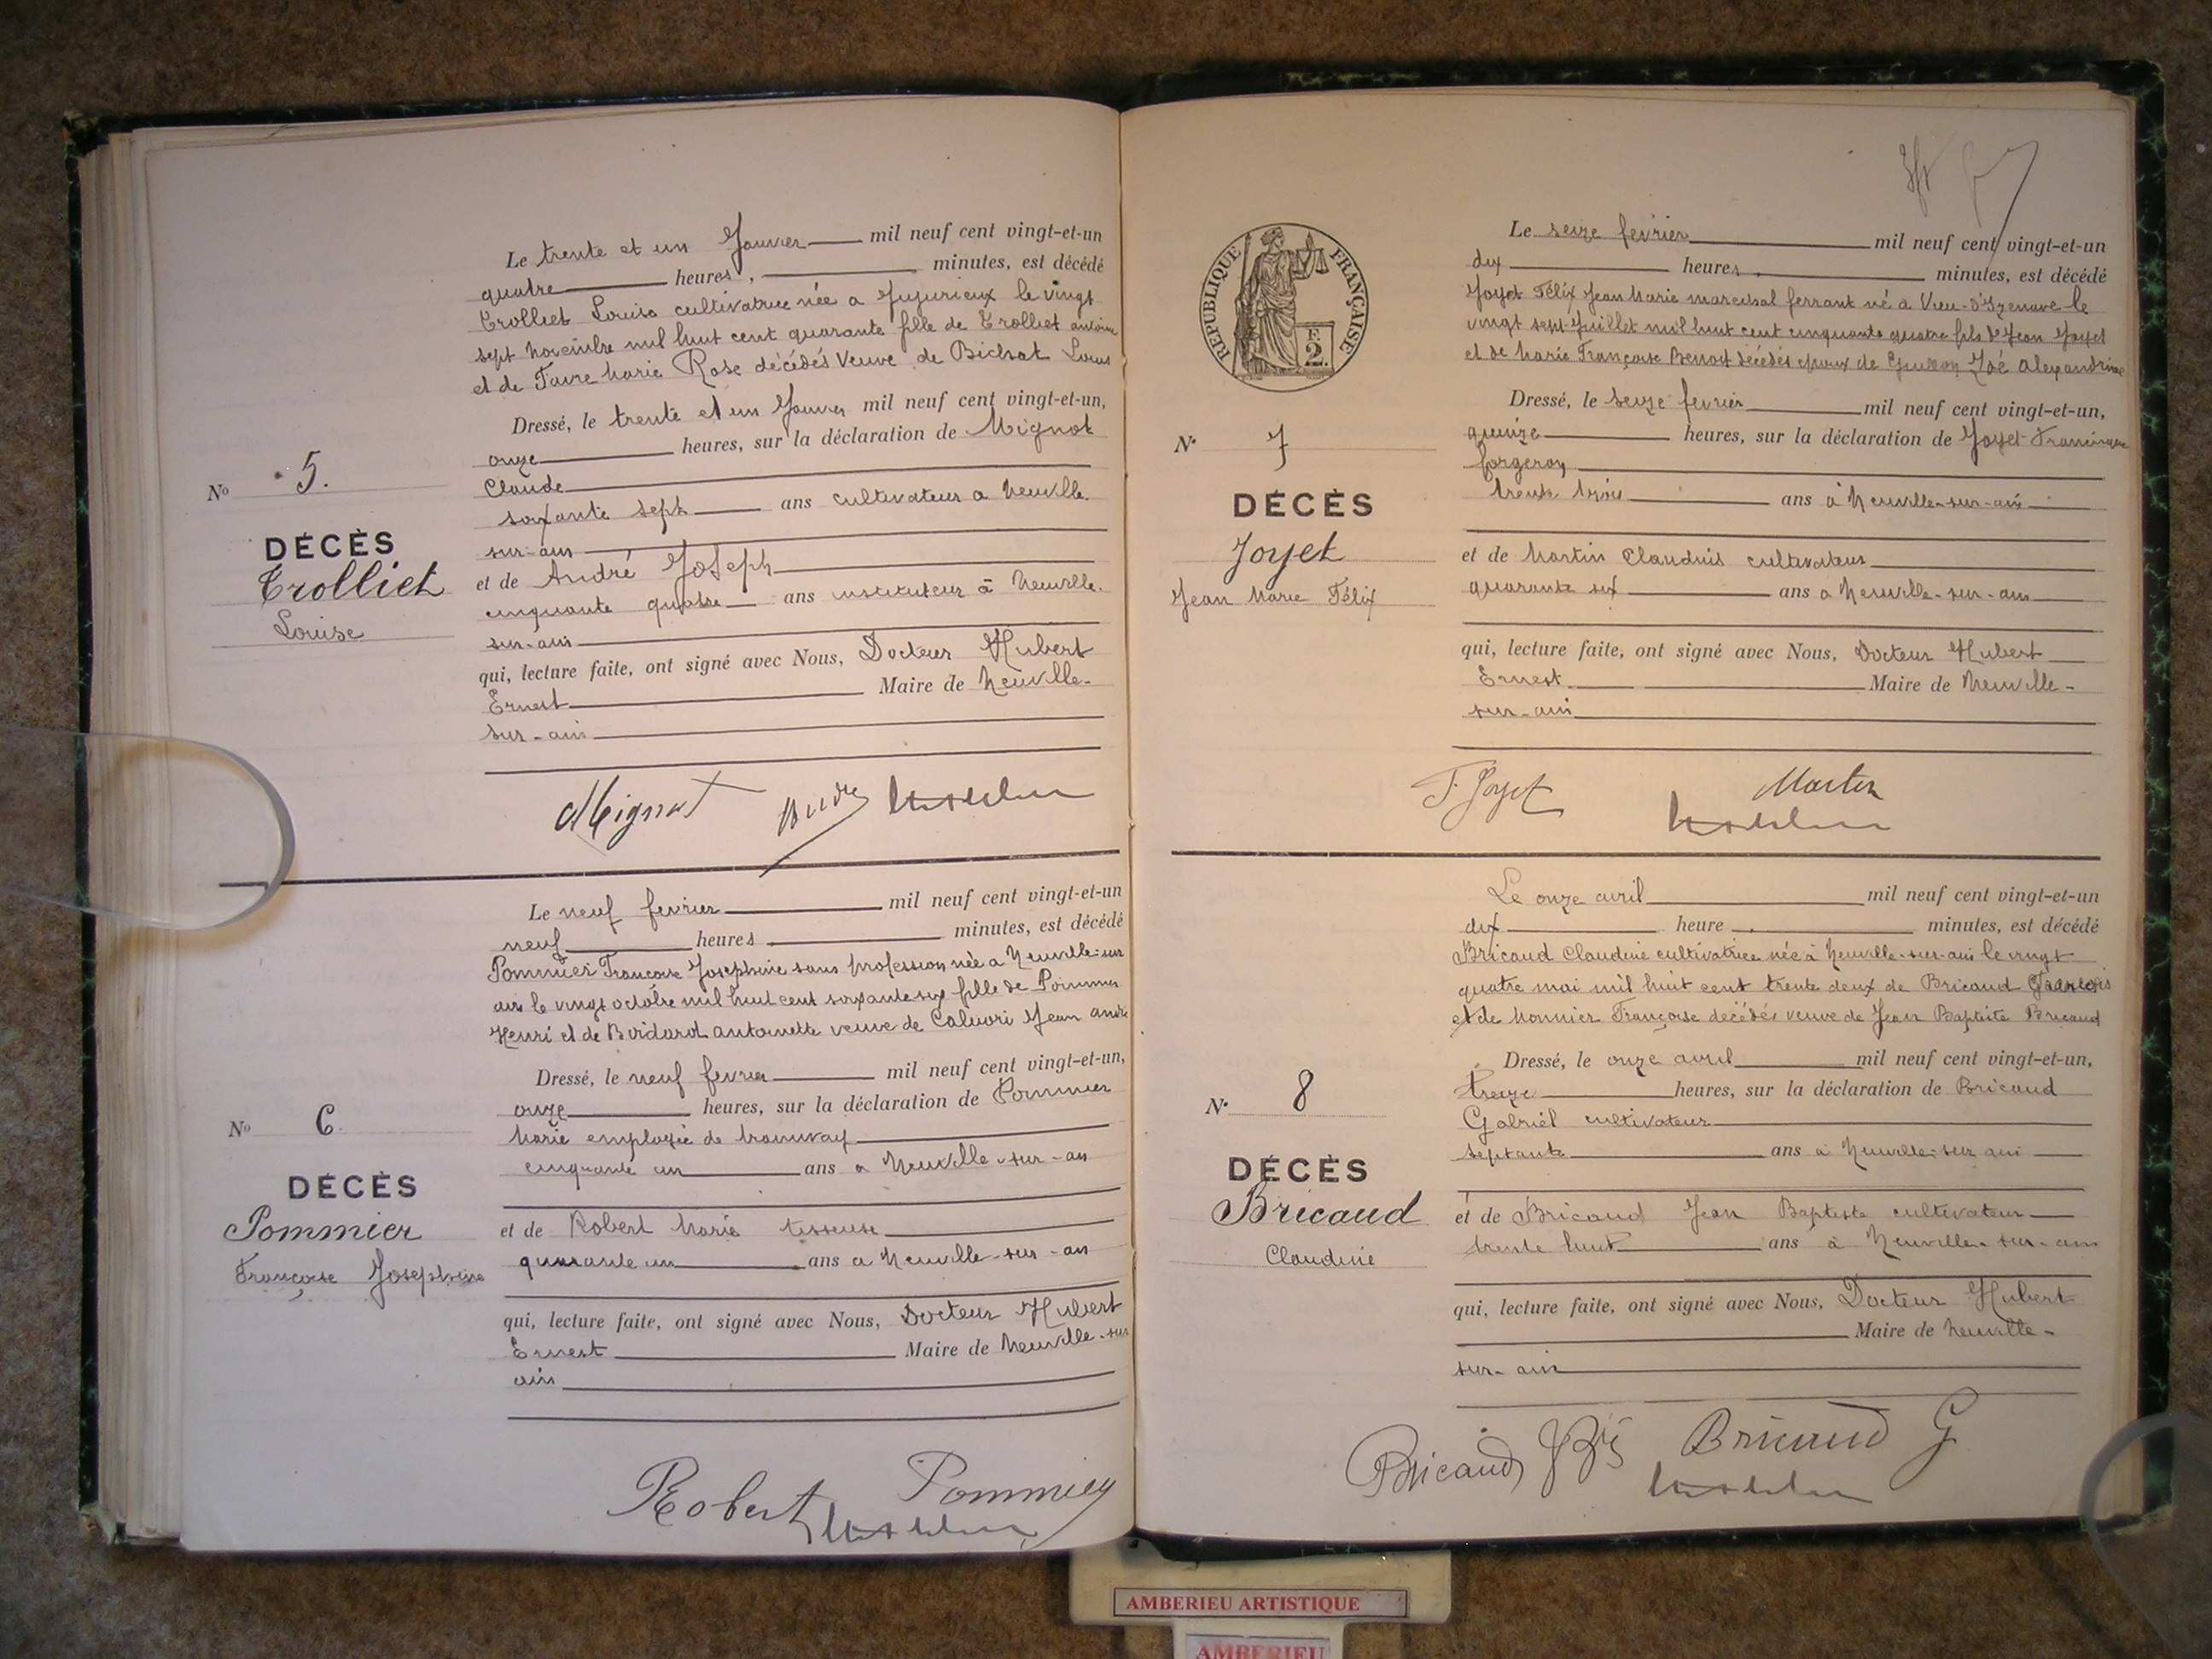 Le trente et un Janvier mil neuf cent vingt-et-un
quatre heures, minutes, est décédé
Trolliet Louise cultivatrice née a Jujurieux le vingt
sept Novembre mil huit cent quarante fille de Trolliet antoine
et de Favre Marie Rose décédés Veuve de Bichat Louis
Dressé, le trente et un Janvier mil neuf cent vingt-et-un,
onze heures, sur la déclaration de Mignot
Claude
soixante sept ans cultivateur a Neuville.
sur-ain
et de André Joseph
cinquante quatre ans instituteur à Neuville.
sur-ain
qui, lecture faite, ont signé avec Nous, Docteur Hubert
Ernest Maire de Neuville-
sur-ain
No 5.
DÉCÈS
Trolliet
Louise
Mignot André
Le neuf fevrier mil neuf cent vingt-et-un
neuf heures minutes, est décédé
Pommier Francoise Josephine sans profession née a Neuville-sur
ain le vingt octobre mil huit cent soixante six fille de Pommier
Henri et de antoinette veuve de Jean andré
Dressé, le neuf fevrier mil neuf cent vingt-et-un,
onze heures, sur la déclaration de Pommier
Marie employée de tramway
cinquante un ans a Neuville-sur-ain
et de Robert Marie tisseuse
quarante un ans a Neuville-sur-ain
qui, lecture faite, ont signé avec Nous, Docteur Hubert
Ernest Maire de Neuville-sur
ain
No 6.
DÉCÈS
Pommier
Françoise Josephine
Robert Pommier
RÉPUBLIQUE FRANÇAISE
F.
2.
Le seize fevrier mil neuf cent vingt-et-un
dix heures minutes, est décédé
Joyet Félix Jean Marie marechal ferrant né a Vieu-d'Izenave le
vingt sept Juillet mil huit cent cinquante quatre fils de Jean Joyet
et de Marie Françoise Benoit décédés epoux de Zoé alexandrine
Dressé, le seize fevrier mil neuf cent vingt-et-un,
quinze heures, sur la déclaration de Joyet
forgeron
trente trois ans à Neuville-sur-ain
et de Martin Claudius cultivateur
quarante six ans a Neuville-sur-ain
qui, lecture faite, ont signé avec Nous, Docteur Hubert
Ernest Maire de Neuville-
sur-ain
No 7
DÉCÈS
Joyet
Jean Marie Félix
F. Joyet Martin
Le onze avril mil neuf cent vingt-et-un
dix heure minutes, est décédé
Bricaud Claudine cultivatrice née à Neuville-sur-ain le vingt
quatre mai mil huit cent trente deux de Bricaud Francois
et de Monnier Françoise décédés veuve de Jean Baptiste Bricaud
Dressé, le onze avril mil neuf cent vingt-et-un,
treize heures, sur la déclaration de Bricaud
Gabriel cultivateur
septante ans à Neuville-sur ain
et de Bricaud Jean Baptiste cultivateur
trente huit ans à Neuville-sur-ain
qui, lecture faite, ont signé avec Nous, Docteur Hubert
Maire de Neuville-
sur-ain
No 8
DÉCÈS
Bricaud
Claudine
Bricaud Bricaud G
AMBERIEU ARTISTIQUE
AMBERIEU